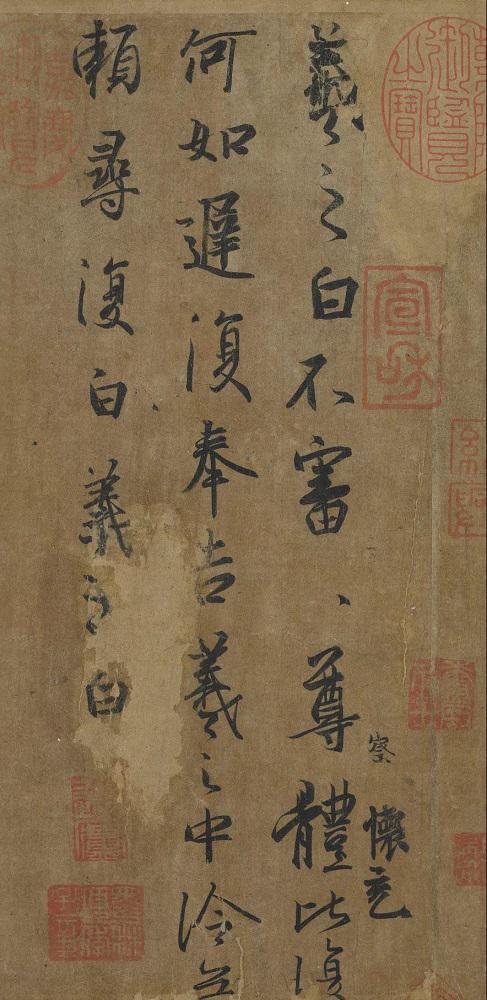 御覽之寶
宣和
察 懷充
羲之白不審、尊體比復
何如遲復奉告羲之中冷無
賴尋復白羲之白